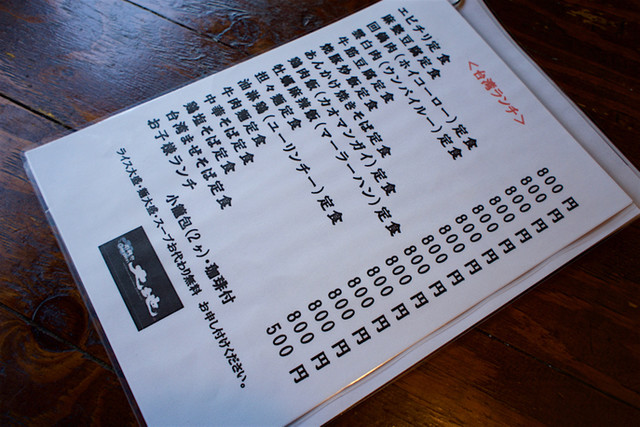 <台湾ランチ>
エビチリ定食 800円
麻婆豆腐定食 800円
回鍋肉(ホイコーロー)定食 800円
雲白肉(ウンパイルー)定食 800円
牛筋豆腐定食 800円
焼豚炒飯定食 800円
あんかけ焼きそば定食 800円
鶏肉飯(カオマンガイ)定食 800円
牡蠣麻辣飯(マーラーハン)定食 800円
担々麺定食 800円
油淋鶏(ユーリンチー)定食 800円
牛肉麺定食 800円
中華そば定食 800円
そば定食 800円
台湾まぜそば定食 800円
お子様ランチ 500円
小籠包(2ヶ)・珈琲付
ライス大盛・麺大盛・スープお代わり無料 お申し付けください。